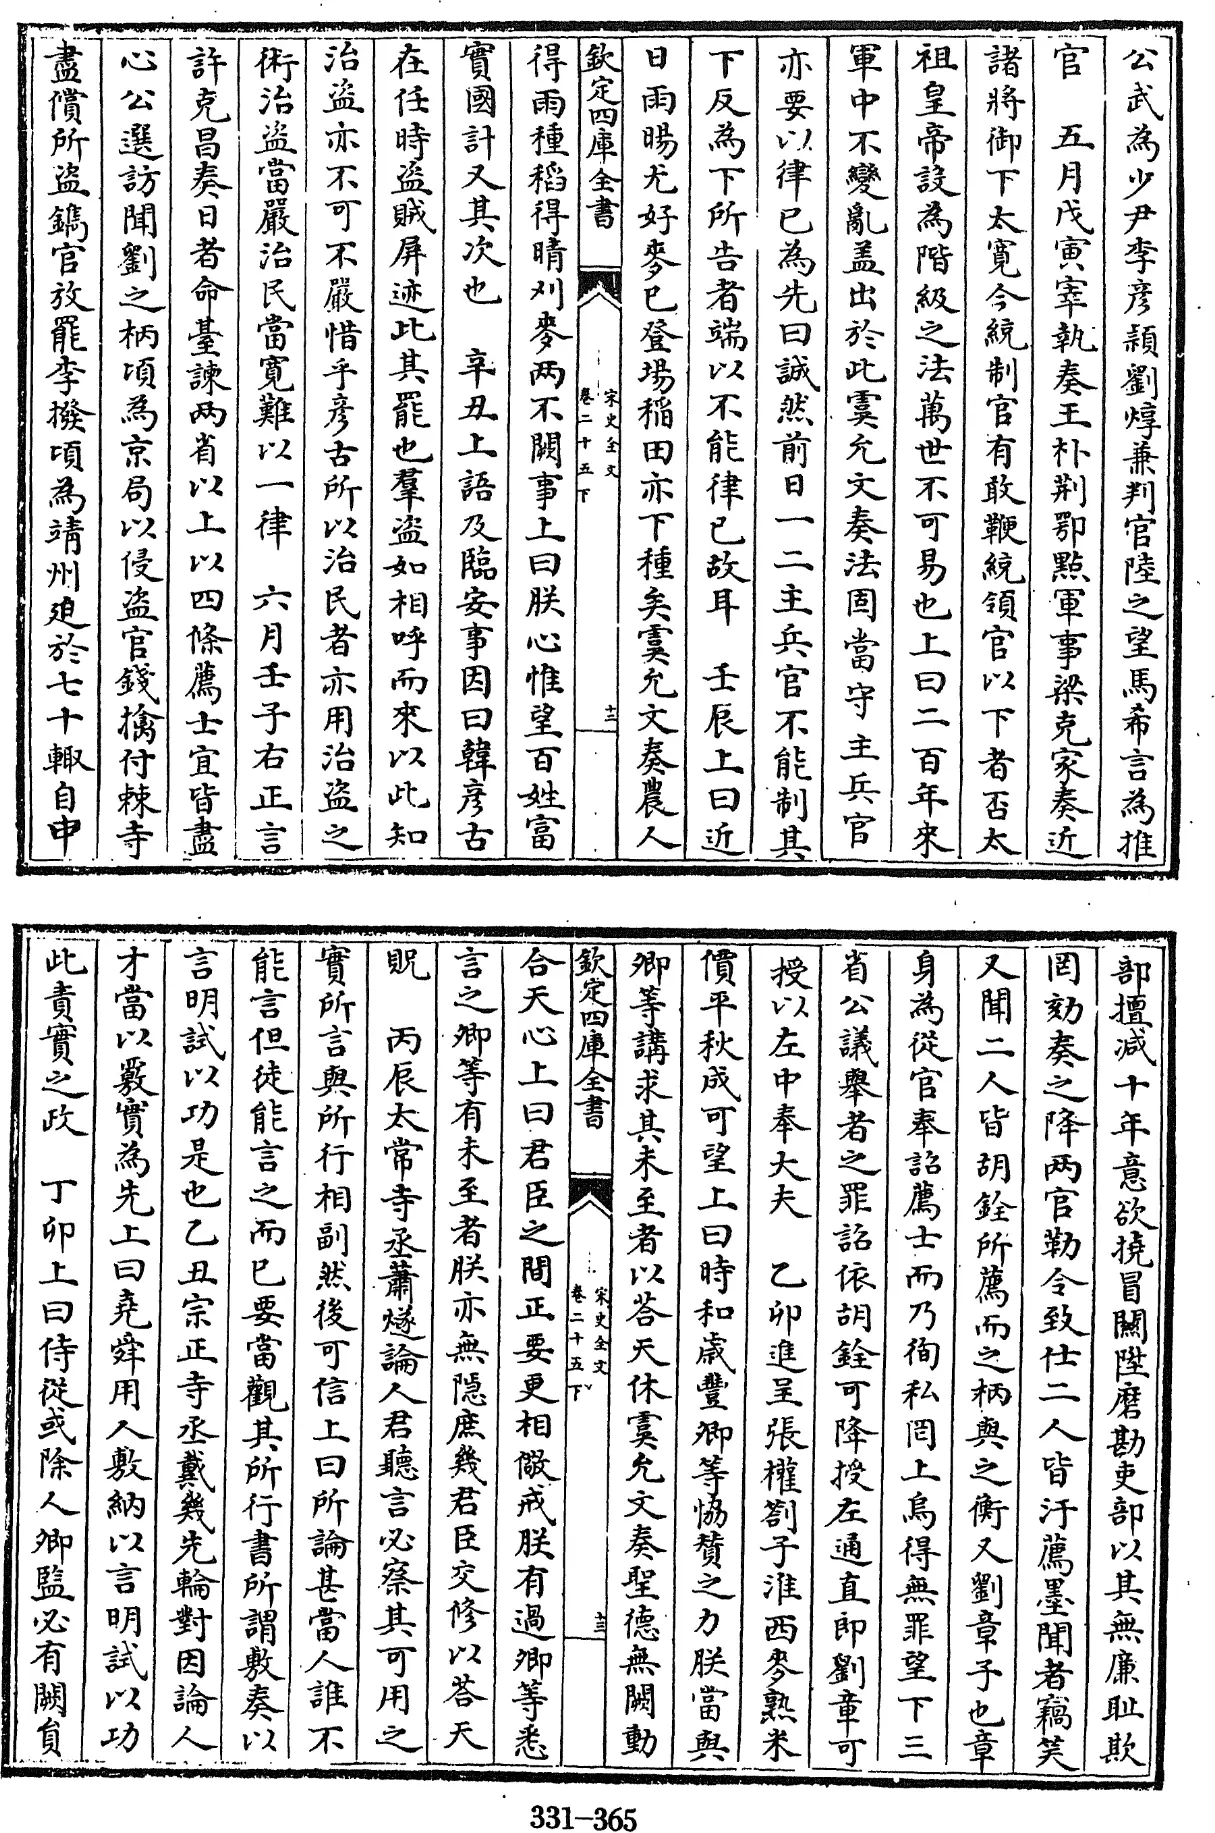 公武為少尹李彦頴劉焞兼判官陸之望馬希言為推
官　五月戊寅宰執奏王朴荆鄂點軍事梁克家奏近
諸將御下太寛今統制官有敢鞭統領官以下者否太
祖皇帝設為階級之法萬世不可易也上曰二百年來
軍中不變亂盖出於此虞允文奏法固當守主兵官
亦要以律已為先曰誠然前日一二主兵官不能制其
下反為下所告者端以不能律已故耳　壬辰上曰近
日雨暘尤好麥已登場稲田亦下種矣虞允文奏農人
欽定四庫全書
宋史全文
卷二十五下
十三
得雨種稻得晴刈麥两不闕事上曰朕心惟望百姓富
實國計又其次也　辛丑上語及臨安事因曰韓彦古
在任時盗賊屏迹此其罷也羣盗如相呼而來以此知
治盗亦不可不嚴惜乎彦古所以治民者亦用治盗之
術治盗當嚴治民當寛難以一律　六月壬子右正言
許克昌奏日者命臺諫两省以上以四條薦士宜皆盡
心公選訪聞劉之柄頃為京局以侵盗官錢擒付棘寺
盡償所盗鐫官放罷李撥頃為靖州廹於七十輙自申
部擅减十年意欲撓冒闗陞磨勘吏部以其無廉耻欺
罔劾奏之降两官勒令致仕二人皆汙薦墨聞者竊笑
又聞二人皆胡銓所薦而之柄與之衡又劉章子也章
身為從官奉詔薦士而乃徇私罔上烏得無罪望下三
省公議舉者之罪詔依胡銓可降授左通直郎劉章可
授以左中奉大夫　乙卯進呈張權劄子淮西麥熟米
價平秋成可望上曰時和歳豐卿等恊賛之力朕當與
卿等講求其未至者以荅天休虞允文奏聖德無闕動
欽定四庫全書
宋史全文
卷二十五下
十三
合天心上曰君臣之間正要更相儆戒朕有過卿等悉
言之卿等有未至者朕亦無隠庶幾君臣交修以荅天
貺　丙辰太常寺丞蕭燧論人君聽言必察其可用之
實所言與所行相副然後可信上曰所論甚當人誰不
能言但徒能言之而已要當觀其所行書所謂敷奏以
言明試以功是也乙丑宗正寺丞戴幾先輪對因論人
才當以覈實為先上曰堯舜用人敷納以言明試以功
此責實之政　丁卯上曰侍從或除人卿監必有闕負
331-365